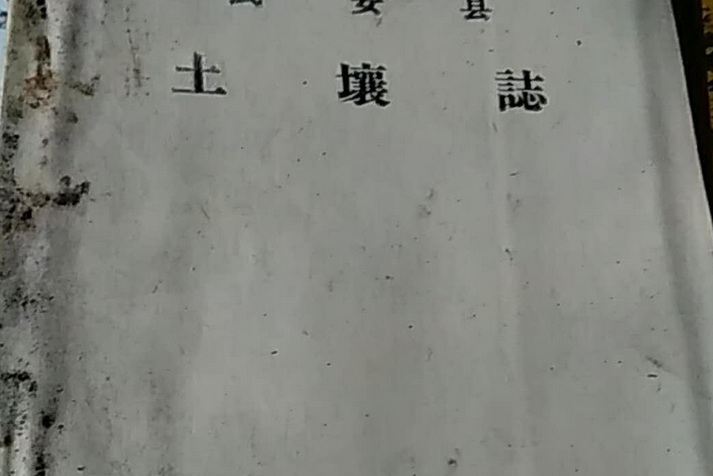 安 县
土 壤 誌